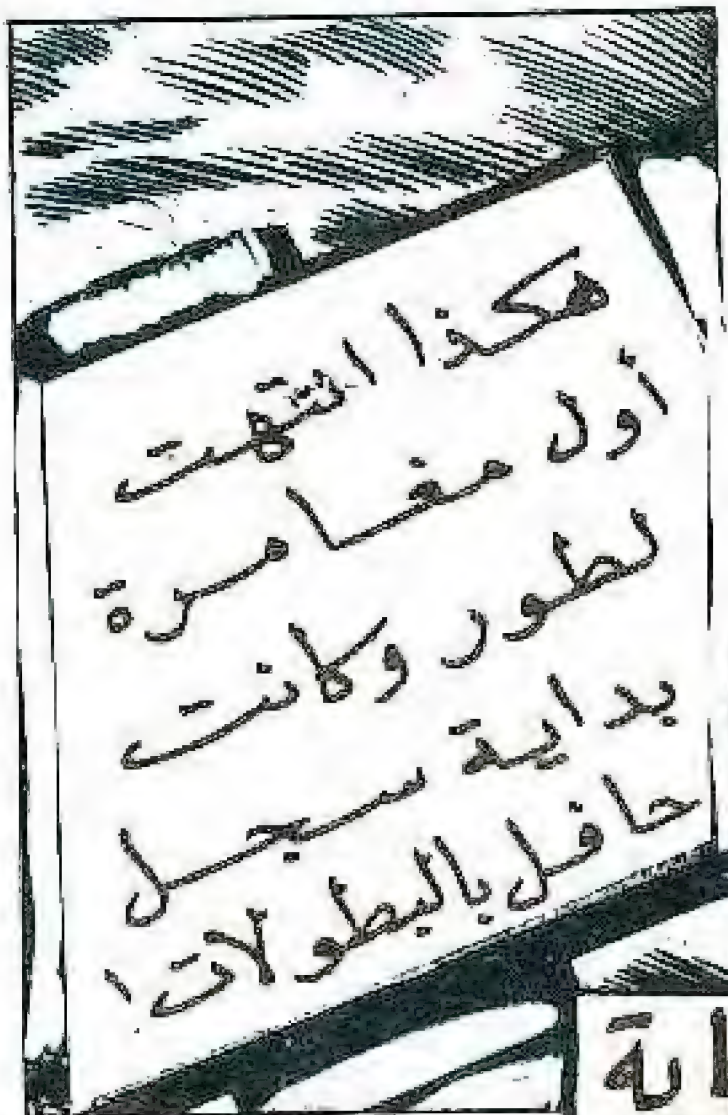 هكذا انتهت
أول مغامرة
لطور وكانت
بداية سجل
حافل بالبطولات!